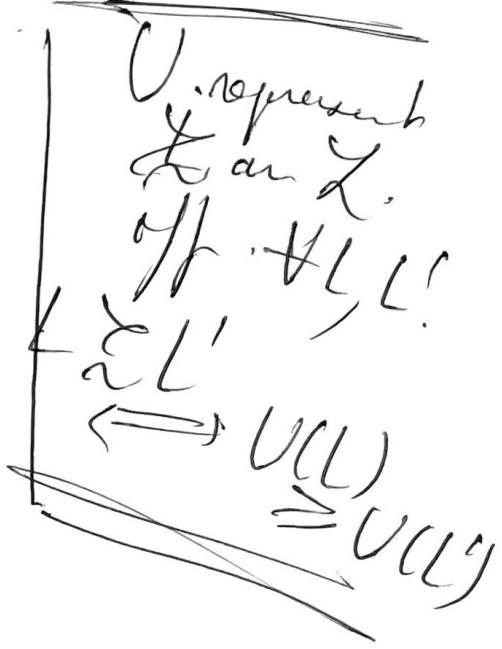 U represents
≿ on ℒ.
iff ∀ L, L'
L ≿ L'
⟺ U(L)
≥ U(L')